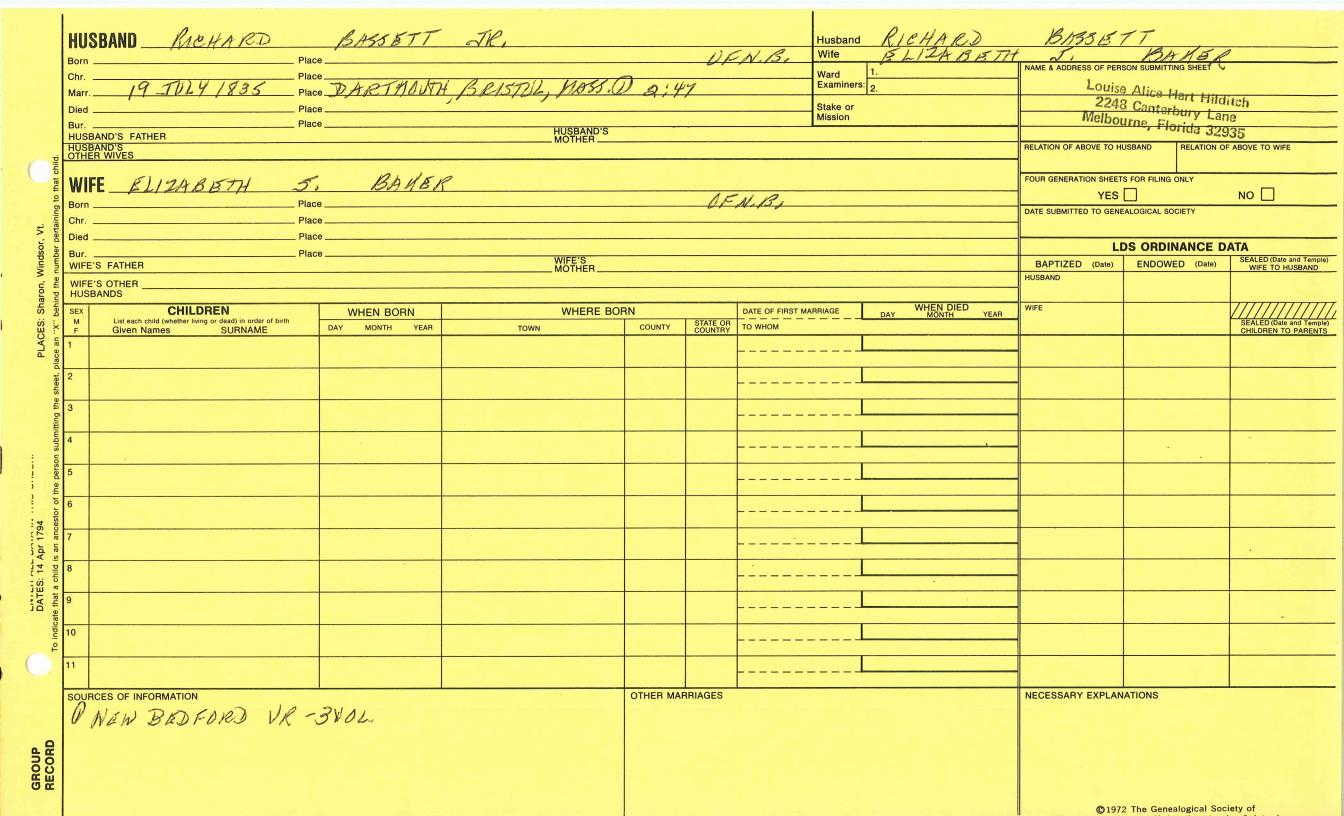 HUSBAND RICHARD BASSETT JR.
Born Place OF N.B.
Chr. Place
Marr. 19 JULY 1835 Place DARTMOUTH, BRISTOL, MASS. ① 2:47
Died Place
Bur. Place
HUSBAND'S FATHER HUSBAND'S MOTHER
HUSBAND'S OTHER WIVES
Husband RICHARD BASSETT
Wife ELIZABETH J. BAKER
Ward Examiners: 1.
2.
Stake or Mission
NAME & ADDRESS OF PERSON SUBMITTING SHEET
Louise Alice Hart Hilditch
2248 Canterbury Lane
Melbourne, Florida 32935
RELATION OF ABOVE TO HUSBAND RELATION OF ABOVE TO WIFE
FOUR GENERATION SHEETS FOR FILING ONLY
YES NO
DATE SUBMITTED TO GENEALOGICAL SOCIETY
WIFE ELIZABETH S. BAKER
Born Place OF N.B.
Chr. Place
Died Place
Bur. Place
WIFE'S FATHER WIFE'S MOTHER
WIFE'S OTHER HUSBANDS
LDS ORDINANCE DATA
BAPTIZED (Date) ENDOWED (Date) SEALED (Date and Temple) WIFE TO HUSBAND
HUSBAND
WIFE
SEALED (Date and Temple) CHILDREN TO PARENTS
SEX M F
CHILDREN
List each child (whether living or dead) in order of birth
Given Names SURNAME
WHEN BORN
DAY MONTH YEAR
WHERE BORN
TOWN COUNTY STATE OR COUNTRY
DATE OF FIRST MARRIAGE
TO WHOM
WHEN DIED
DAY MONTH YEAR
1
2
3
4
5
6
7
8
9
10
11
SOURCES OF INFORMATION
① NEW BEDFORD VR - 3VOL
OTHER MARRIAGES
NECESSARY EXPLANATIONS
©1972 The Genealogical Society of
GROUP RECORD
DATES: 14 Apr 1794
PLACES: Sharon, Windsor, Vt.
To indicate that a child is an ancestor of the person submitting the sheet, place an "X" behind the number pertaining to that child.